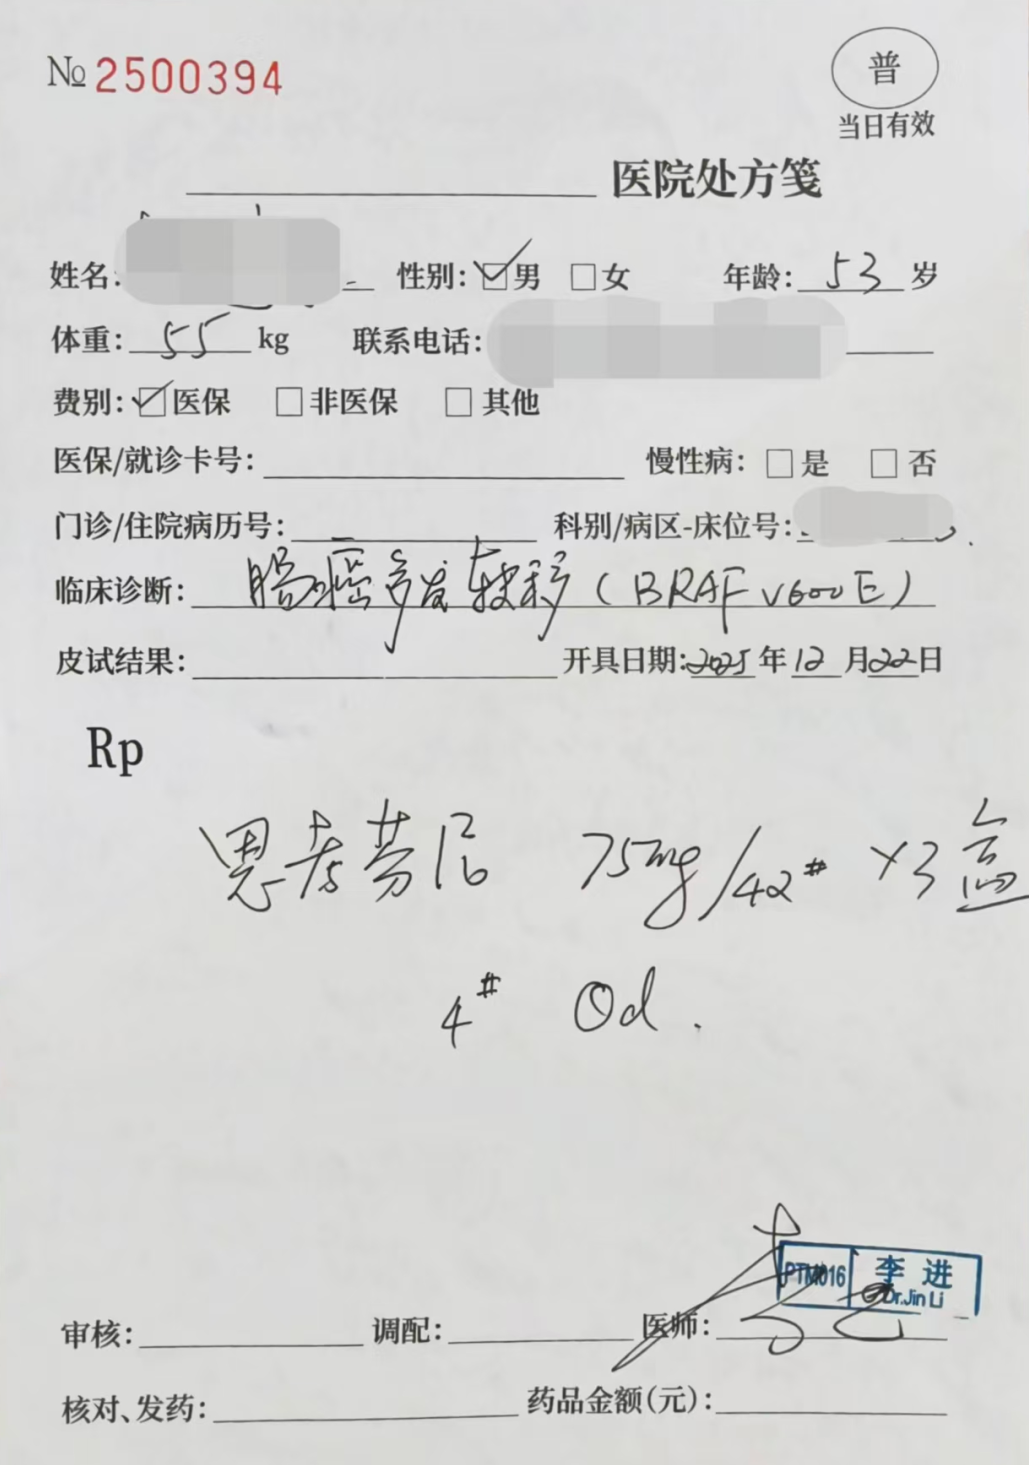 № 2500394
普
当日有效
医院处方笺
姓名: 性别: ☑男 □女 年龄: 53 岁
体重: 55 kg 联系电话:
费别: ☑医保 □非医保 □其他
医保/就诊卡号: 慢性病: □是 □否
门诊/住院病历号: 科别/病区-床位号:
临床诊断: 肠癌多发转移(BRAF V600E)
皮试结果: 开具日期: 2025年12月22日
Rp
恩考芬尼 75mg/42# ×3盒
4# Od.
PTM016 李进
Dr.Jin Li
审核: 调配: 医师:
核对、发药: 药品金额(元):